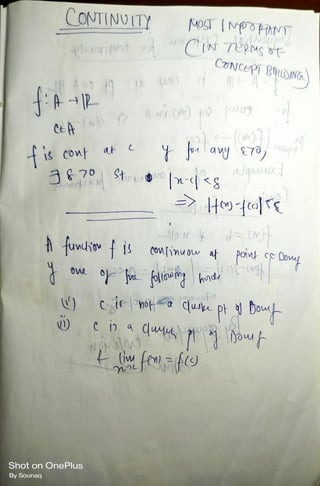 CONTINUITY
MOST IMPORTANT
(IN TERMS OF
CONCEPT BUILDING)
f: A → ℝ
c∈A
f is cont at c if for any ε>0,
∃ δ>0 st |x-c|<δ
=> |f(x)-f(c)|<ε
A function f is continuous at point c∈ Domf
if one of the following holds
(i) c is not a cluster pt of Domf
ii) c is a cluster pt of Domf
& lim f(x) = f(c)
x→c
Shot on OnePlus
By Sounaq